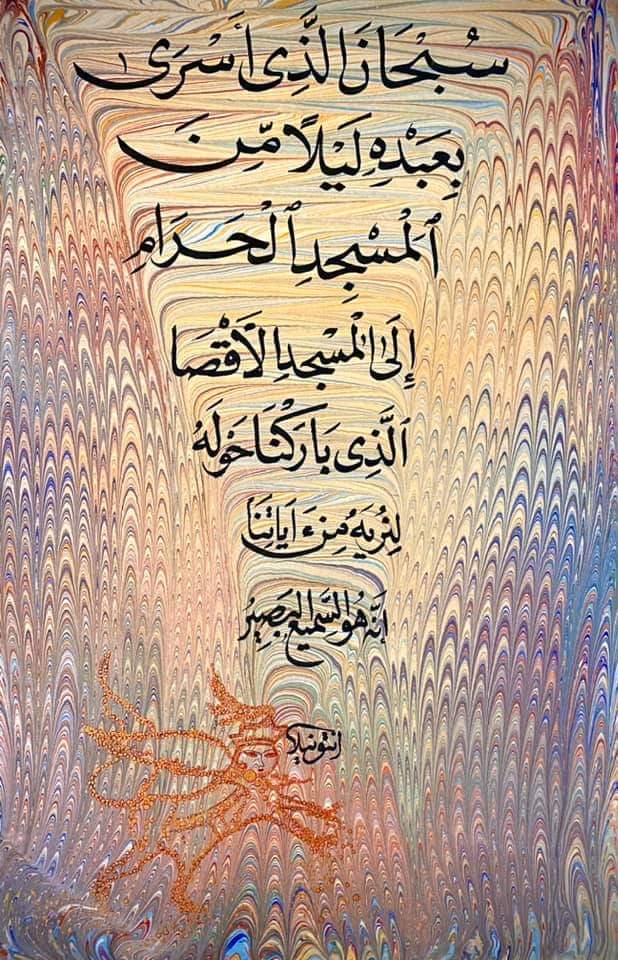 سُبْحَانَ الَّذِى أَسْرَى
بِعَبْدِهِ لَيْلًا مِّنَ
ٱلْمَسْجِدِ ٱلْحَرَامِ
إِلَى ٱلْمَسْجِدِ الَاقْصَا
ٱلَّذِى بَارَكْنَا حَوْلَهُ
لِنُرِيَهُ مِنَ ءَايَاتِنَا
إنَّهُ هُوَ السَّمِيعُ البَصِيرُ
انتونيلا